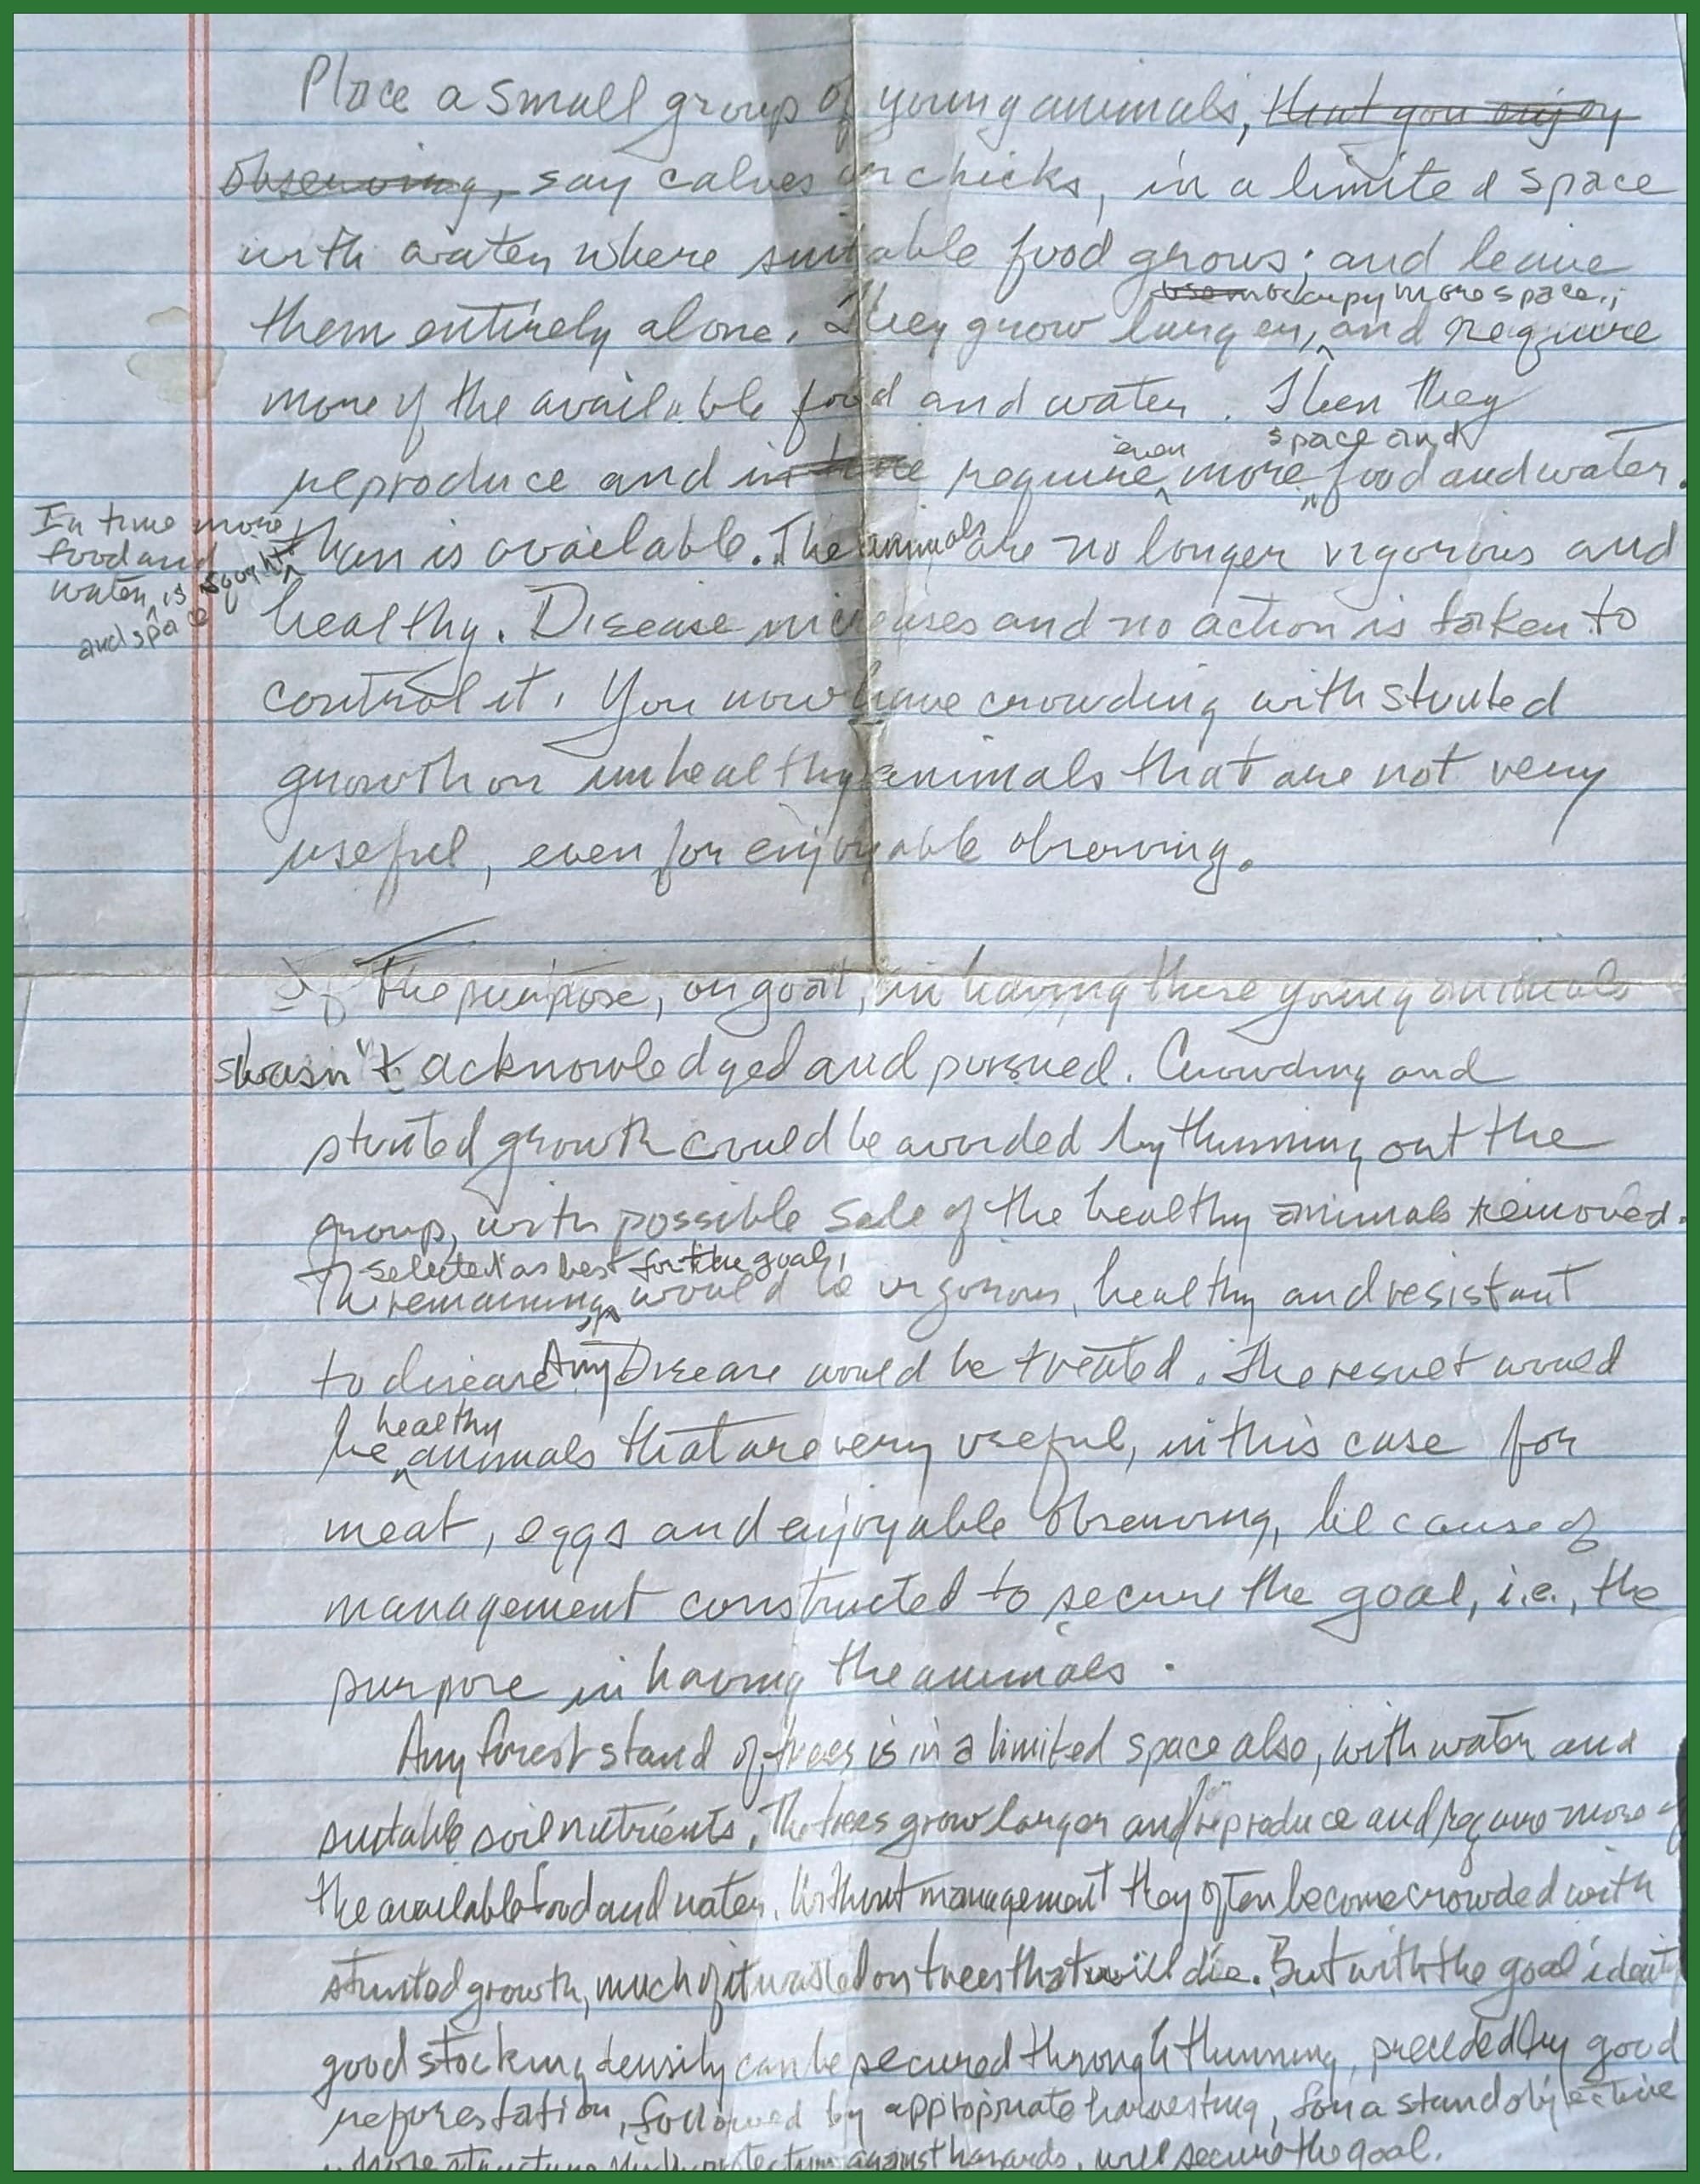 Place a small group of young animals, that you enjoy
observing, say calves or chicks, in a limited space
with water where suitable food grows; and leave
occupy more space,
them entirely alone. They grow larger, and require
more of the available food and water. Then they
even space and
reproduce and in time require more food and water.
In time more
food and
water is sought
and space
than is available. The animals are no longer vigorous and
healthy. Disease increases and no action is taken to
control it. You now have crowding with stunted
growth on unhealthy animals that are not very
useful, even for enjoyable observing.
The purpose, or goal, in having these young animals
wasn't acknowledged and pursued. Crowding and
stunted growth could be avoided by thinning out the
group, with possible sale of the healthy animals removed.
selected as best for the goal,
The remaining, would be vigorous, healthy and resistant
to disease. Any Disease would be treated. The result would
healthy
be animals that are very useful, in this case for
meat, eggs and enjoyable observing, because of
management constructed to secure the goal, i.e., the
purpose in having the animals.
Any forest stand of trees is in a limited space also, with water and
suitable soil nutrients. The trees grow larger and reproduce and require more of
the available food and water. Without management they often become crowded with
stunted growth, much of it wasted on trees that will die. But with the goal
good stocking density can be secured through thinning, preceded by good
reforestation, followed by appropriate harvesting, for a stand objective
whose structure, with protection against hazards, will secure the goal.